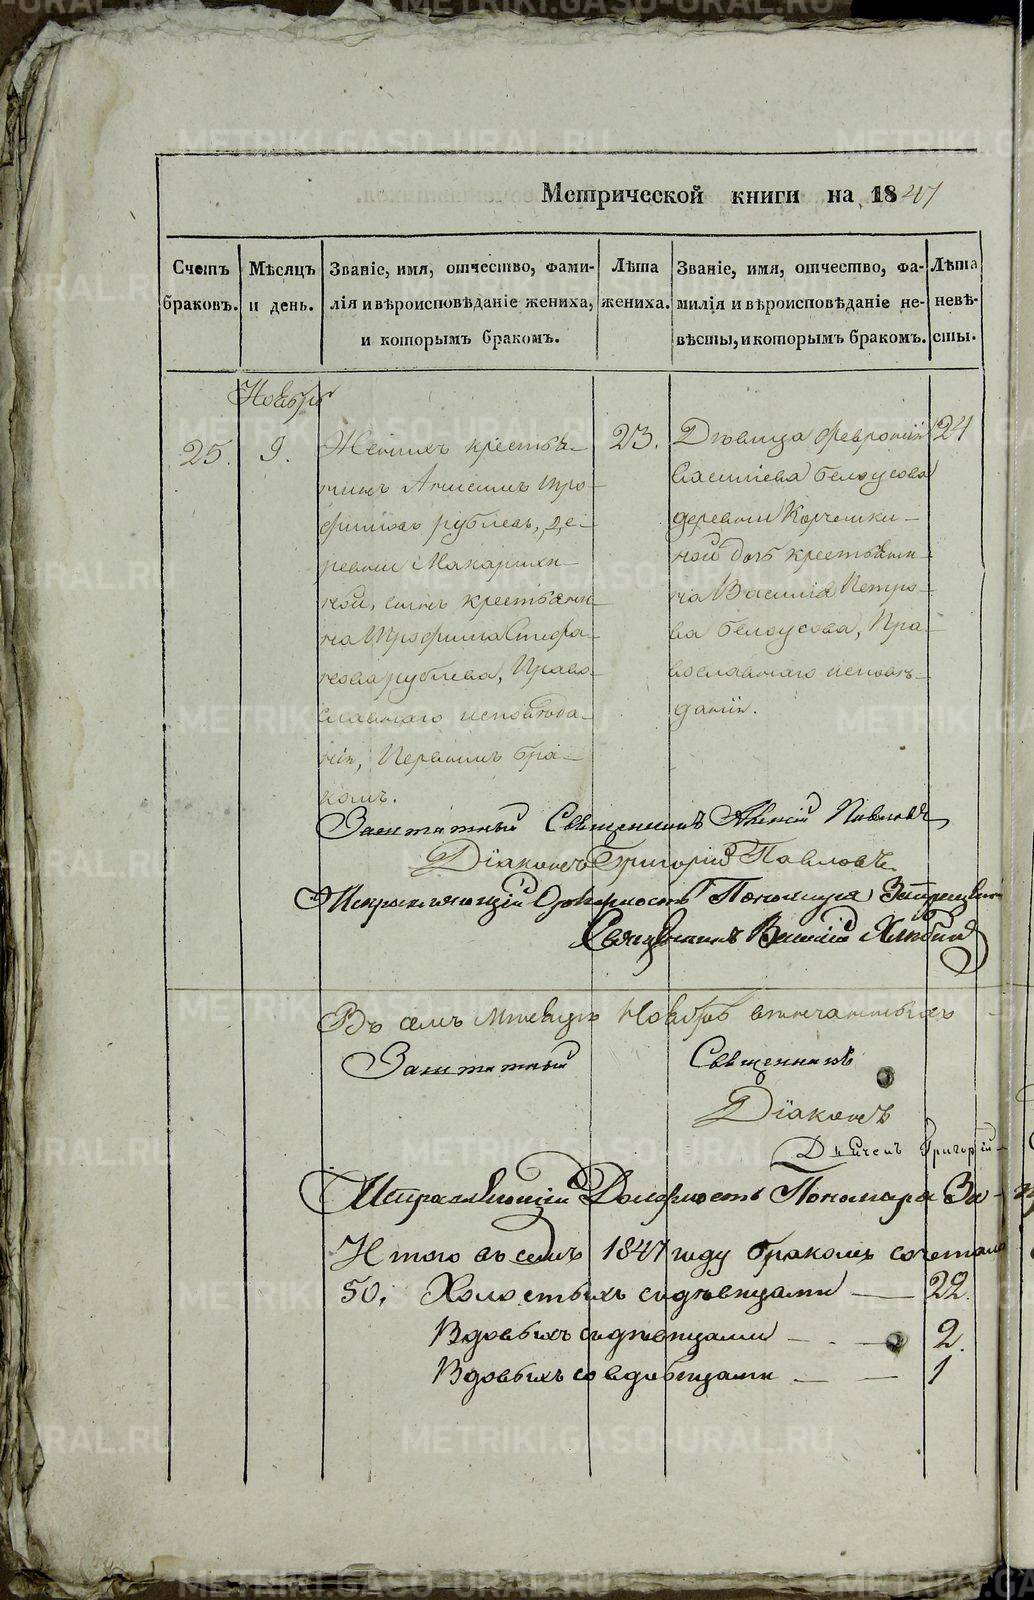 Метрической книги на 1847
Счетъ браковъ.
Мѣсяцъ и день.
Званіе, имя, отчество, фами-
лія и вѣроисповѣданіе жениха,
и которымъ бракомъ.
Лѣта
жениха.
Званіе, имя, отчество, фа-
милія и вѣроисповѣданіе не-
вѣсты, и которымъ бракомъ.
Лѣта
невѣ-
сты.
Ноябрь
25.
9.
Женихъ крестья-
нинъ Анисимъ Тро-
фимовъ рублевъ, де-
ревни Макарихи-
ной, сынъ крестьяни-
на Трофима Стефа-
нова рублева, Право-
славнаго исповѣда-
нія, Первымъ бра-
комъ.
23.
Дѣвица Февронія
Василіева белоусова
деревни Корчемки-
ной дочь крестьяни-
на Василія Петро-
ва белоусова, Пра-
вославнаго исповѣ-
данія.
24
Заштатный Священникъ Павловъ
Діаконъ Григорій Павловъ
Исправляющій Должность Пономаря
Священникъ Василій
Въ семъ Мѣсяцѣ Ноябрѣ вѣнчанныхъ
Заштатный Священникъ
Діаконъ
Дьячекъ Григорій
Исправляющій Должность Пономаря За-
Итого въ семъ 1847 году бракомъ сочетано
50. Холостыхъ съ дѣвицами — 22.
Вдовыхъ съ дѣвицами — 2.
Вдовыхъ со вдовицами — 1
METRIKI.GASO-URAL.RU